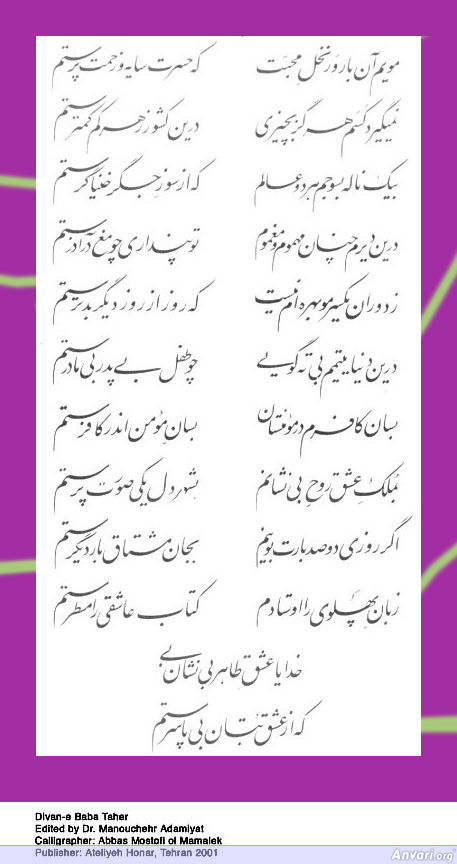 مویم آن بارور نخل محبت که حسرت سایه و زحمت پرستم
نمیگیرد کسم هرگز بچیزی درین کشور ز هر کم کمترستم
بیک ناله بسوجم هر دو عالم که از سوز جگر خنیاگرستم
درین دیرم چنان مهموم و مغموم تو پنداری چو مغ در آذرستم
ز دوران یکسر مو بهره‌ام نیست که روز از روز دیگر بدترستم
درین دنیا یتیم بی ته گویی چو طفل بی پدر بی مادرستم
بسان کافرم در مؤمنستان بسان مؤمن اندر کافرستم
بملک عشق روح بی نشانم بشهر دل یکی صورت پرستم
اگر روزی دو صد بارت بوینم بجان مشتاق بار دیگرستم
زبان پهلوی را اوستادم کتاب عاشقی را مسطرستم
خدایا عشق طاهر بی نشان بی
که از عشق بتان بی پا سرستم
Divan-e Baba Taher
Edited by Dr. Manouchehr Adamiyat
Calligrapher: Abbas Mostofi ol Mamalek
Publisher: Ateliyeh Honar, Tehran 2001
Anvari.org